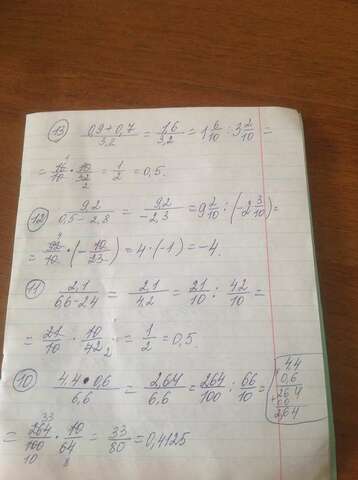 13) (0,9+0,7)/3,2 = 1,6/3,2 = 1 6/10 : 3 2/10 =
= 16/10 · 10/32 = 1/2 = 0,5.
12) 9,2/(0,5-2,8) = 9,2/-2,3 = 9 2/10 : (-2 3/10) =
= 92/10 · (-10/23) = 4 · (-1) = -4.
11) 2,1/(6,6-2,4) = 2,1/4,2 = 21/10 : 42/10 =
= 21/10 · 10/42 = 1/2 = 0,5.
10) (4,4 · 0,6)/6,6 = 2,64/6,6 = 264/100 : 66/10 =
= 264/100 · 10/64 = 33/80 = 0,4125
4,4
0,6
264
00
2,64